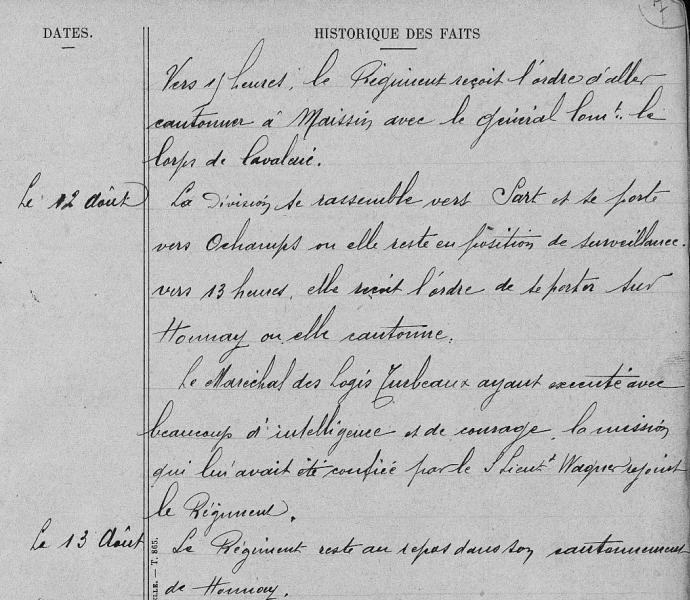 DATES.
HISTORIQUE DES FAITS
Vers 15 heures, le Régiment reçoit l'ordre d'aller
cantonner à Maissin avec le général Comt. le
Corps de Cavalerie.
Le 12 Août
La Division se rassemble vers Sart et se porte
vers Ochamps ou elle reste en position de surveillance.
vers 13 heures, elle reçoit l'ordre de se porter sur
Honnay ou elle cantonne.
Le Maréchal des Logis Turbeaux ayant executé avec
beaucoup d'intelligence et de courage, la mission
qui lui avait été confiée par le S Lieut Wagner rejoint
le Régiment.
Le 13 Août
Le Régiment reste au repos dans son cantonnement
de Honnay.
T. 865.